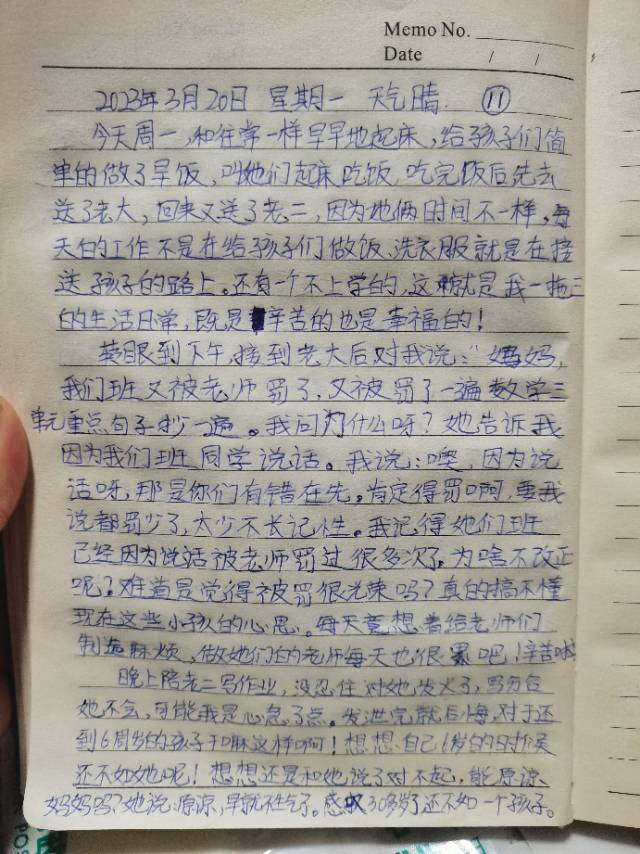 Memo No.
Date / /
2023年3月20日 星期一 天气晴. ⑪
今天周一,和往常一样早早地起床,给孩子们简
单的做了早饭,叫她们起床吃饭,吃完饭后先去
送了老大,回来又送了老二,因为她俩时间不一样,每
天的工作不是在给孩子们做饭、洗衣服就是在接
送孩子的路上。还有一个不上学的,这就是我一拖三
的生活日常,既是辛苦的也是幸福的!
眼到下午,接到老大后对我说:"妈妈,
我们班又被老师罚了,又被罚了一遍数学三
单元重点句子抄一遍。我问为什么呀?她告诉我
因为我们班同学说话。我说:噢,因为说
话呀,那是你们有错在先。肯定得罚啊,要我
说都罚少了,太少不长记性。我记得她们班
已经因为说话被老师罚过很多次了。为啥不改正
呢?难道是觉得被罚很光荣吗?真的搞不懂
现在这些小孩的心思。每天竟想着给老师们
制造麻烦,做她们的老师每天也很累吧!辛苦啦
晚上陪老二写作业,没忍住对她发火了,写方
她不会,可能我是心急了点。发泄完就后悔,对于还
到6周岁的孩子干嘛这样啊!想想自己6岁的时候
还不如她呢!想想还是和她说了对不起,能原谅
妈妈吗?她说:原谅,早就不生气了。感叹30多岁了还不如一个孩子。